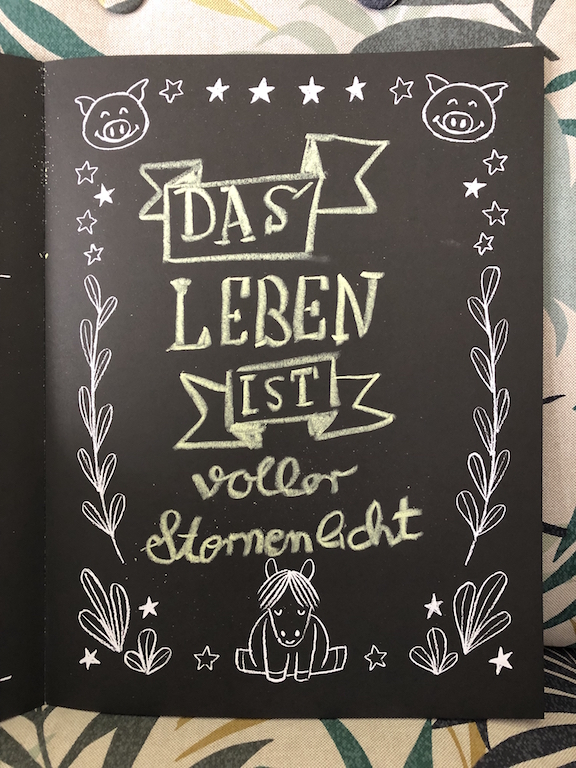 DAS
LEBEN
IST
voller
Sternenlicht